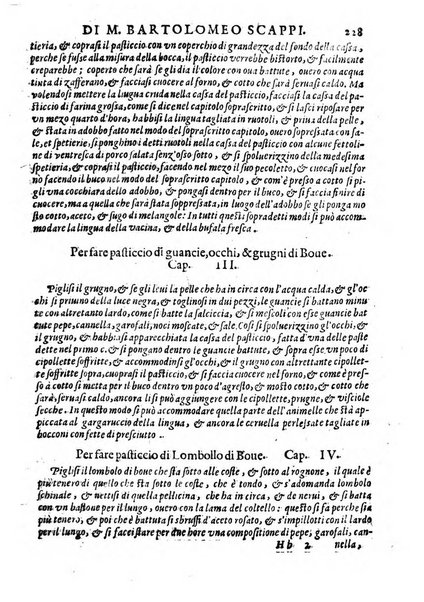 DI M. BARTOLOMEO SCAPPI. 228
tieria, & coprasi il pasticcio con vn coperchio di grandezza del fondo della cassa,
perche se fusse alla misura della bocca, il pasticcio verrebbe bistorto, & facilmente
creparebbe; coperto che sarà se gli dia il colore con oua battute, ouero con acqua
tinta di zafferano, & facciasi cuocere al forno, & cotto che sarà seruasi caldo. Ma
volendosi mettere la lingua cruda nella cassa del pasticcio, facciasi la cassa del pasticcio
di farina grossa, come si dice nel capitolo soprascritto, & si lasci riposare per
vn mezo quarto d'hora, habbisi la lingua tagliata in ruotoli, & priua della pelle, &
& stata in adobbo fatto nel modo del soprascritto capitolo, ouero sopressata con sale,
et spetierie, si ponghino i detti ruotoli nella cassa del pasticcio con alcune fettoline
di ventresca di porco salata senz'osso sotto, & si spoluerizzino della medesima
spetieria, & coprasi il pasticcio, facendo nel mezo il suo pecoletto, & cuocasi nel forno
facendo il buco nel modo del soprascritto capitolo, & com'è presso à cotto si pigli
vna cocchiara dello adobbo, & pongasi dentro per il buco, & si faccia finire di
cuocere, ma a quella che sarà stata soppressata, in cambio dell'adobbo si ponga mosto
cotto, aceto, & sugo di melangole: In tutti questi sopradetti modi si può accommodare
la lingua della vacina, & della bufala fresca.
Per fare pasticcio di guancie, occhi, & grugni di Boue.
Cap. III.
Piglisi il grugno, & se gli leui la pelle che ha in circa con l'acqua calda, & gl'occhi
si priuino della luce negra, & toglinosi in dui pezzi, le guancie si battano minute
con altretanto lardo, come si batte la salciccia, & si mescoli con esse guancie battute
pepe, cannella, garofali, noci moscate, & sale. Così si spoluerizzino gl'occhi, &
il grugno, & habbiasi apparecchiata la cassa del pasticcio, fatta d'una delle paste
dette nel primo c. & si pongano dentro le guancie battute, & sopra esse vn poco di cipollette
soffritte, & accommodinsi gl'occhi, & il grugno con altrettante cipollette
soffritte sopra, & si copra il pasticcio, & facciasi cuocere al forno, & come è
presso à cotto si metta per il buco dentro vn poco d'agresto, & mosto cotto, & cotto che
sarà, seruasi caldo, ancora li si può aggiungere con le cipollette, prugne, & visciole
secche. In questo modo si può accommodare quella parte dell'animelle che stà appiccata
al gargaruccio della lingua, & ancora le ceruella perlesate tagliate in
bocconi con fette di presciutto.
Per fare pasticcio di Lombollo di Boue. Cap. IV.
Piglisi il lombolo di boue che sta sotto alle coste, & sotto al rognone, il quale è
più tenero di quello che sta sotto le coste, che è tondo, & s'addimanda lombolo
schinale, & nettisi di quella pellicina, che ha in circa, & de nerui, & si batta
per il lungo, ouero con la lama del coltello: questo si fa perche sia
più tenero, & poi che è battuto si sbruffi d'aceto rosato, & s'impillotti con il lardo
per il lungo, & si faccia stare per due hore in vna compositione di pepe, garofali, can
Hh 2 nella,